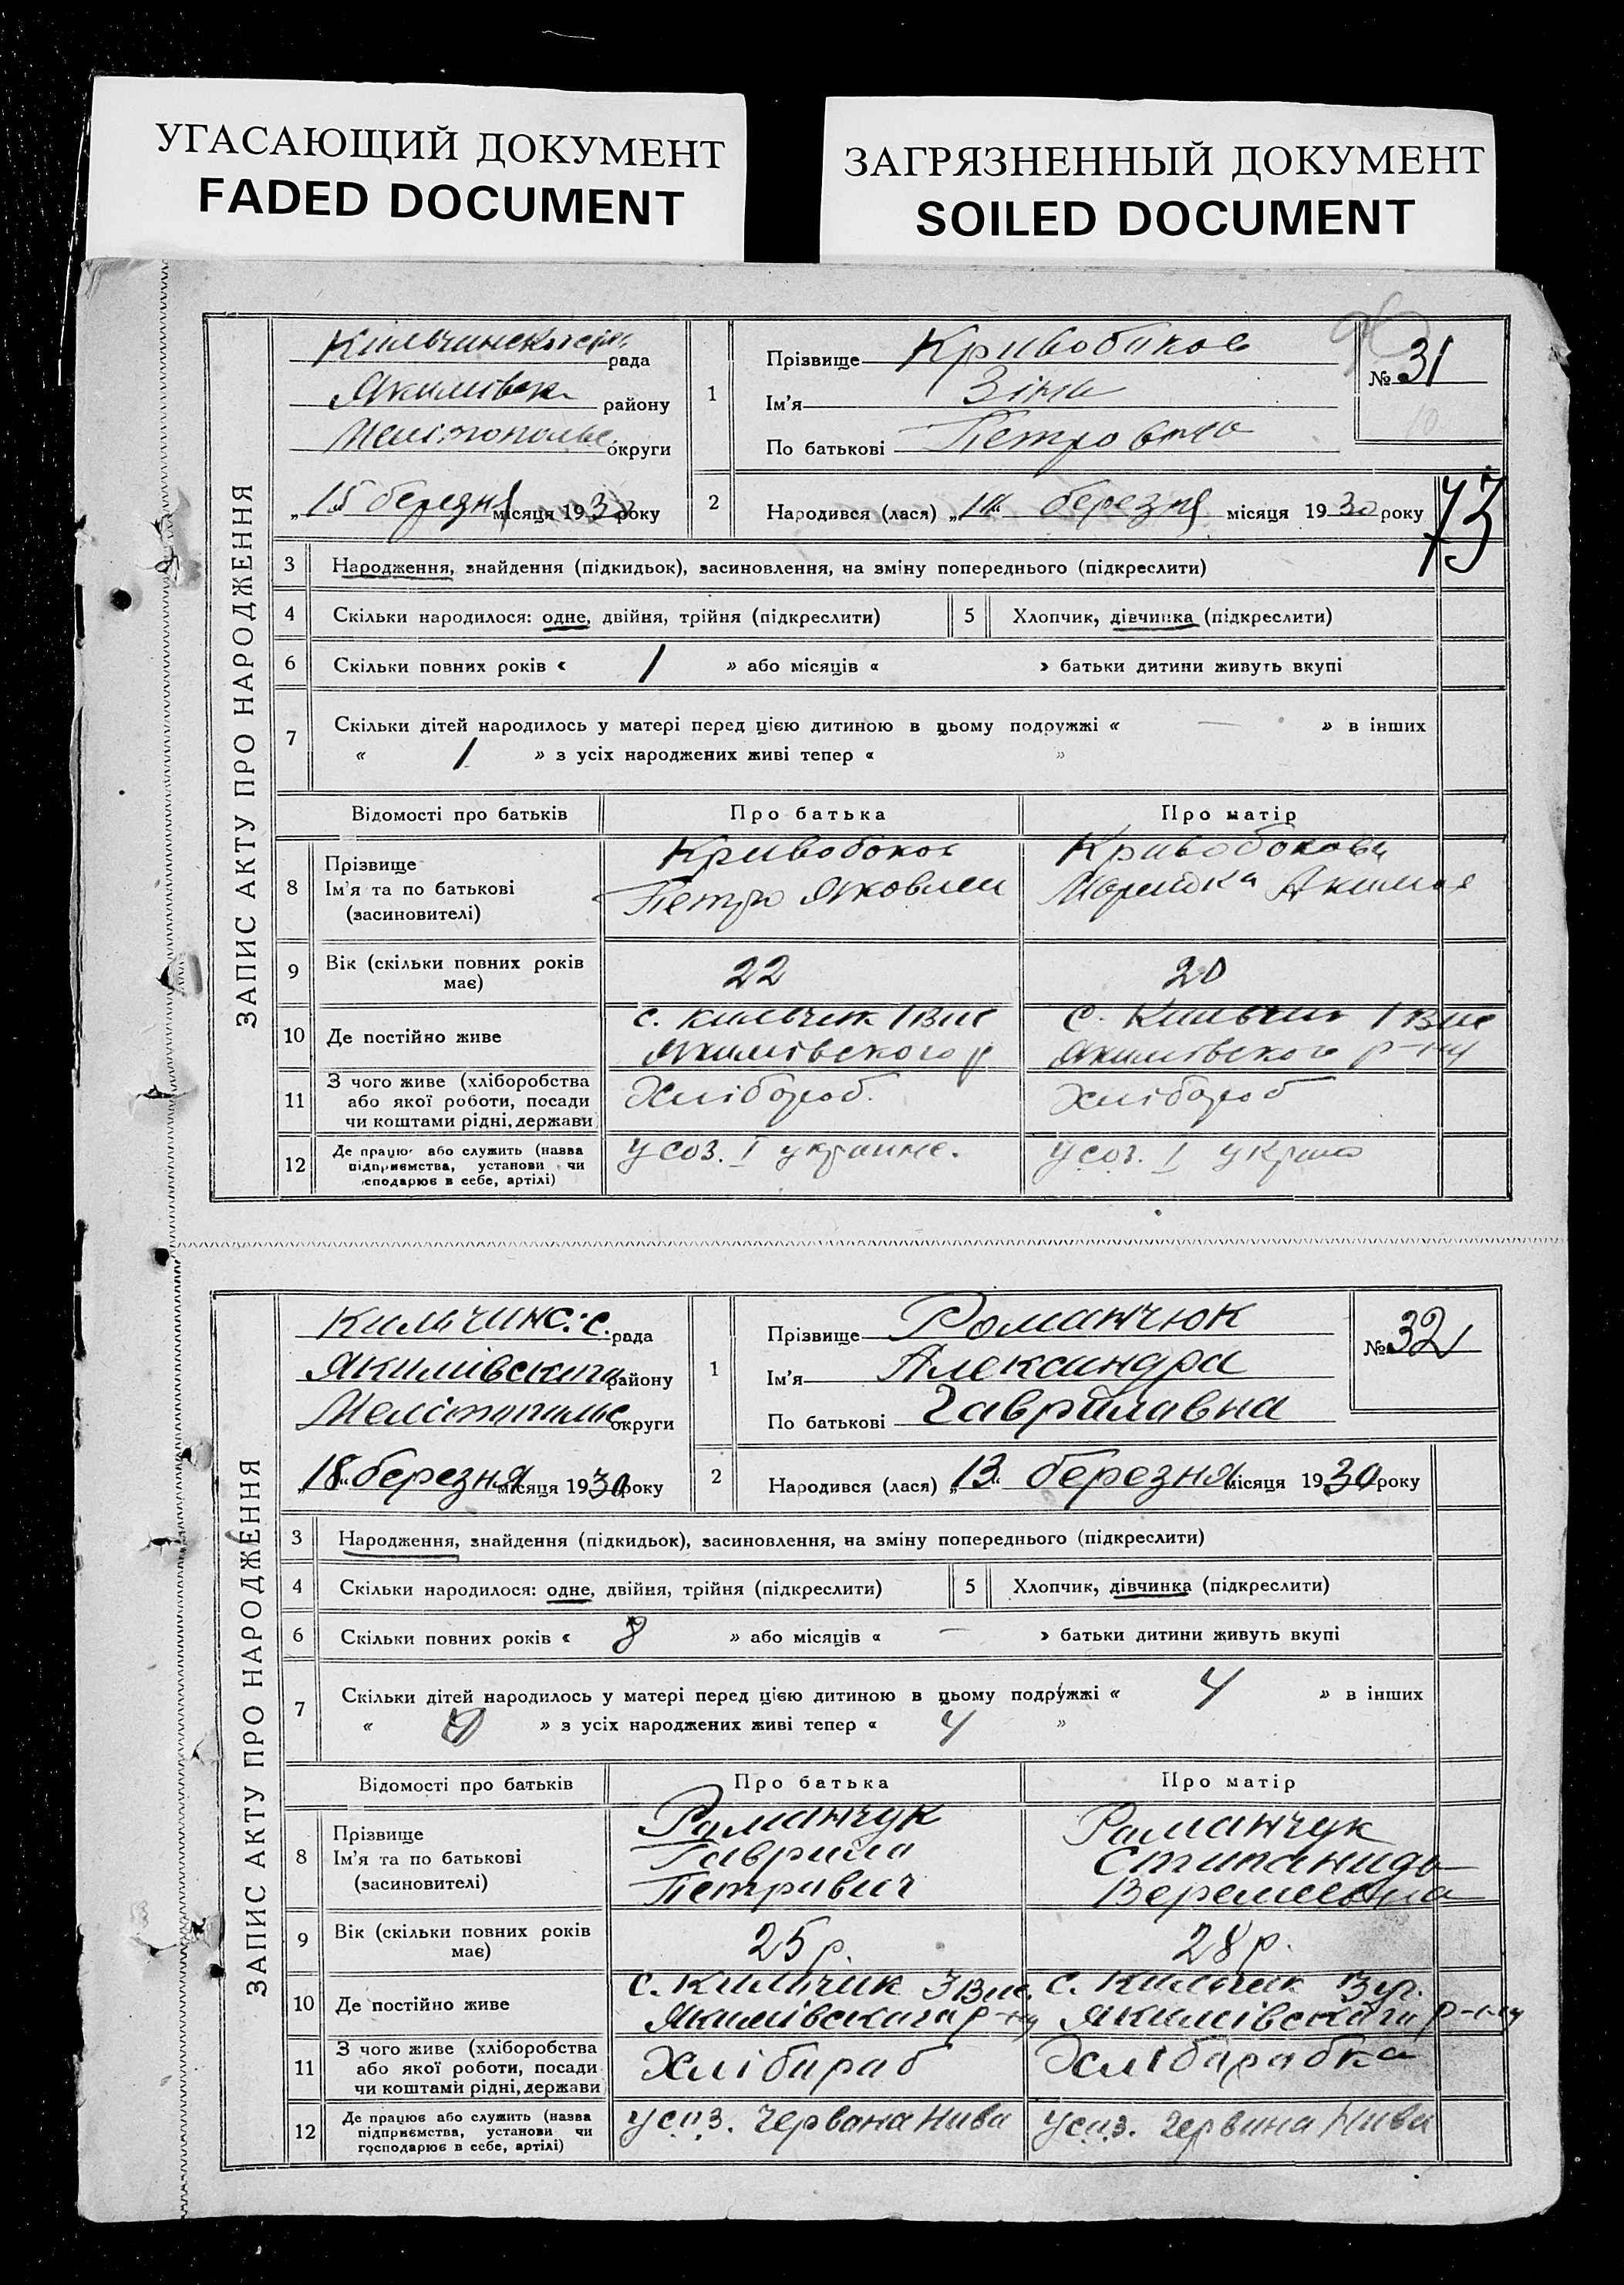 УГАСАЮЩИЙ ДОКУМЕНТ
FADED DOCUMENT
ЗАГРЯЗНЕННЫЙ ДОКУМЕНТ
SOILED DOCUMENT
ЗАПИС АКТУ ПРО НАРОДЖЕННЯ
рада
району
округи
„15 березня місяця 1930 року
1
Прізвище Кривобоков
Ім'я Зіна
По батькові Петровна
№ 31
2
Народився (лася) „14“ березня місяця 1930 року
73
3 Народження, знайдення (підкидьок), засиновлення, на зміну попереднього (підкреслити)
4 Скільки народилося: одне, двійня, трійня (підкреслити) 5 Хлопчик, дівчинка (підкреслити)
6 Скільки повних років « 1 » або місяців « » батьки дитини живуть вкупі
7 Скільки дітей народилось у матері перед цією дитиною в цьому подружжі « — » в інших
« 1 » з усіх народжених живі тепер « »
Відомості про батьків Про батька Про матір
8 Прізвище
Ім'я та по батькові
(засиновителі)
Кривобоков
Петро Яковлев
Кривобокова
9 Вік (скільки повних років
має)
22
20
10 Де постійно живе
Якимівского р
Якимівского р-ну
11 З чого живе (хліборобства
або якої роботи, посади
чи коштами рідні, держави
Хлібороб.
Хлібороб
12 Де працює або служить (назва
підприємства, установи чи
господарює в себе, артілі)
у соз. І
у соз. І
ЗАПИС АКТУ ПРО НАРОДЖЕННЯ
Кильчинс. с. рада
Якимівского району
округи
„18“ березня місяця 1930 року
1
Прізвище Романчюк
Ім'я Александра
По батькові Гаврилавна
№ 32
2
Народився (лася) „13“ березня місяця 1930 року
3 Народження, знайдення (підкидьок), засиновлення, на зміну попереднього (підкреслити)
4 Скільки народилося: одне, двійня, трійня (підкреслити) 5 Хлопчик, дівчинка (підкреслити)
6 Скільки повних років « 8 » або місяців « — » батьки дитини живуть вкупі
7 Скільки дітей народилось у матері перед цією дитиною в цьому подружжі « 4 » в інших
« » з усіх народжених живі тепер « 4 »
Відомості про батьків Про батька Про матір
8 Прізвище
Ім'я та по батькові
(засиновителі)
Романчук
Гаврило
Петравич
Романчук
Стипанида
9 Вік (скільки повних років
має)
25 р.
28 р.
10 Де постійно живе
с. Кильчик
Якимівскага р-ну
с. Кильчик
Якимівскаго р-ну
11 З чого живе (хліборобства
або якої роботи, посади
чи коштами рідні, держави
Хлібараб
Хлібарабка
12 Де працює або служить (назва
підприємства, установи чи
господарює в себе, артілі)
у соз. Червана Нива
у соз. Червана Нива